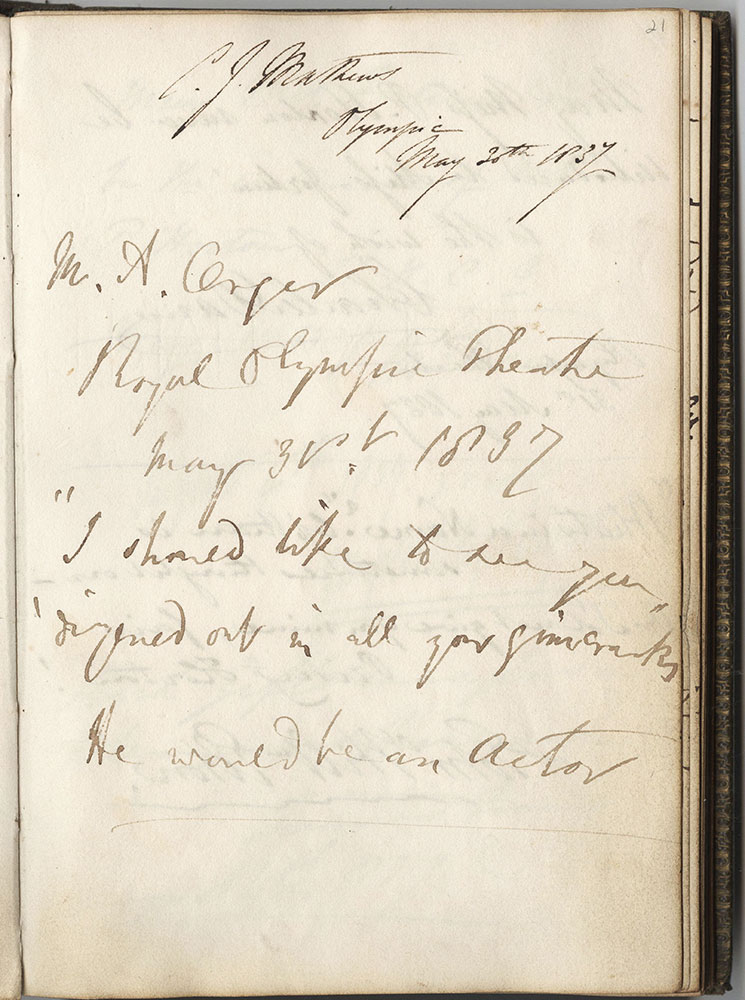 21
C. J. Mathews
Olympic
May 30th 1837
M. A. Orger
Royal Olympic Theatre
May 31st. 1837
"I should like to see you
dizened out in all your gimcracks"
He would be an Actor